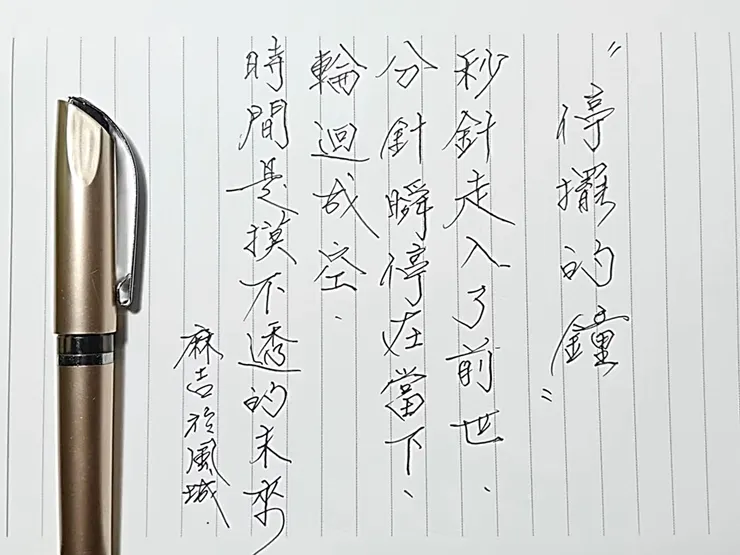 "停擺的鐘"
秒針走入了前世、
分針瞬停在當下、
輪迴成空.
時間是摸不透的未來
麻吉於風城.